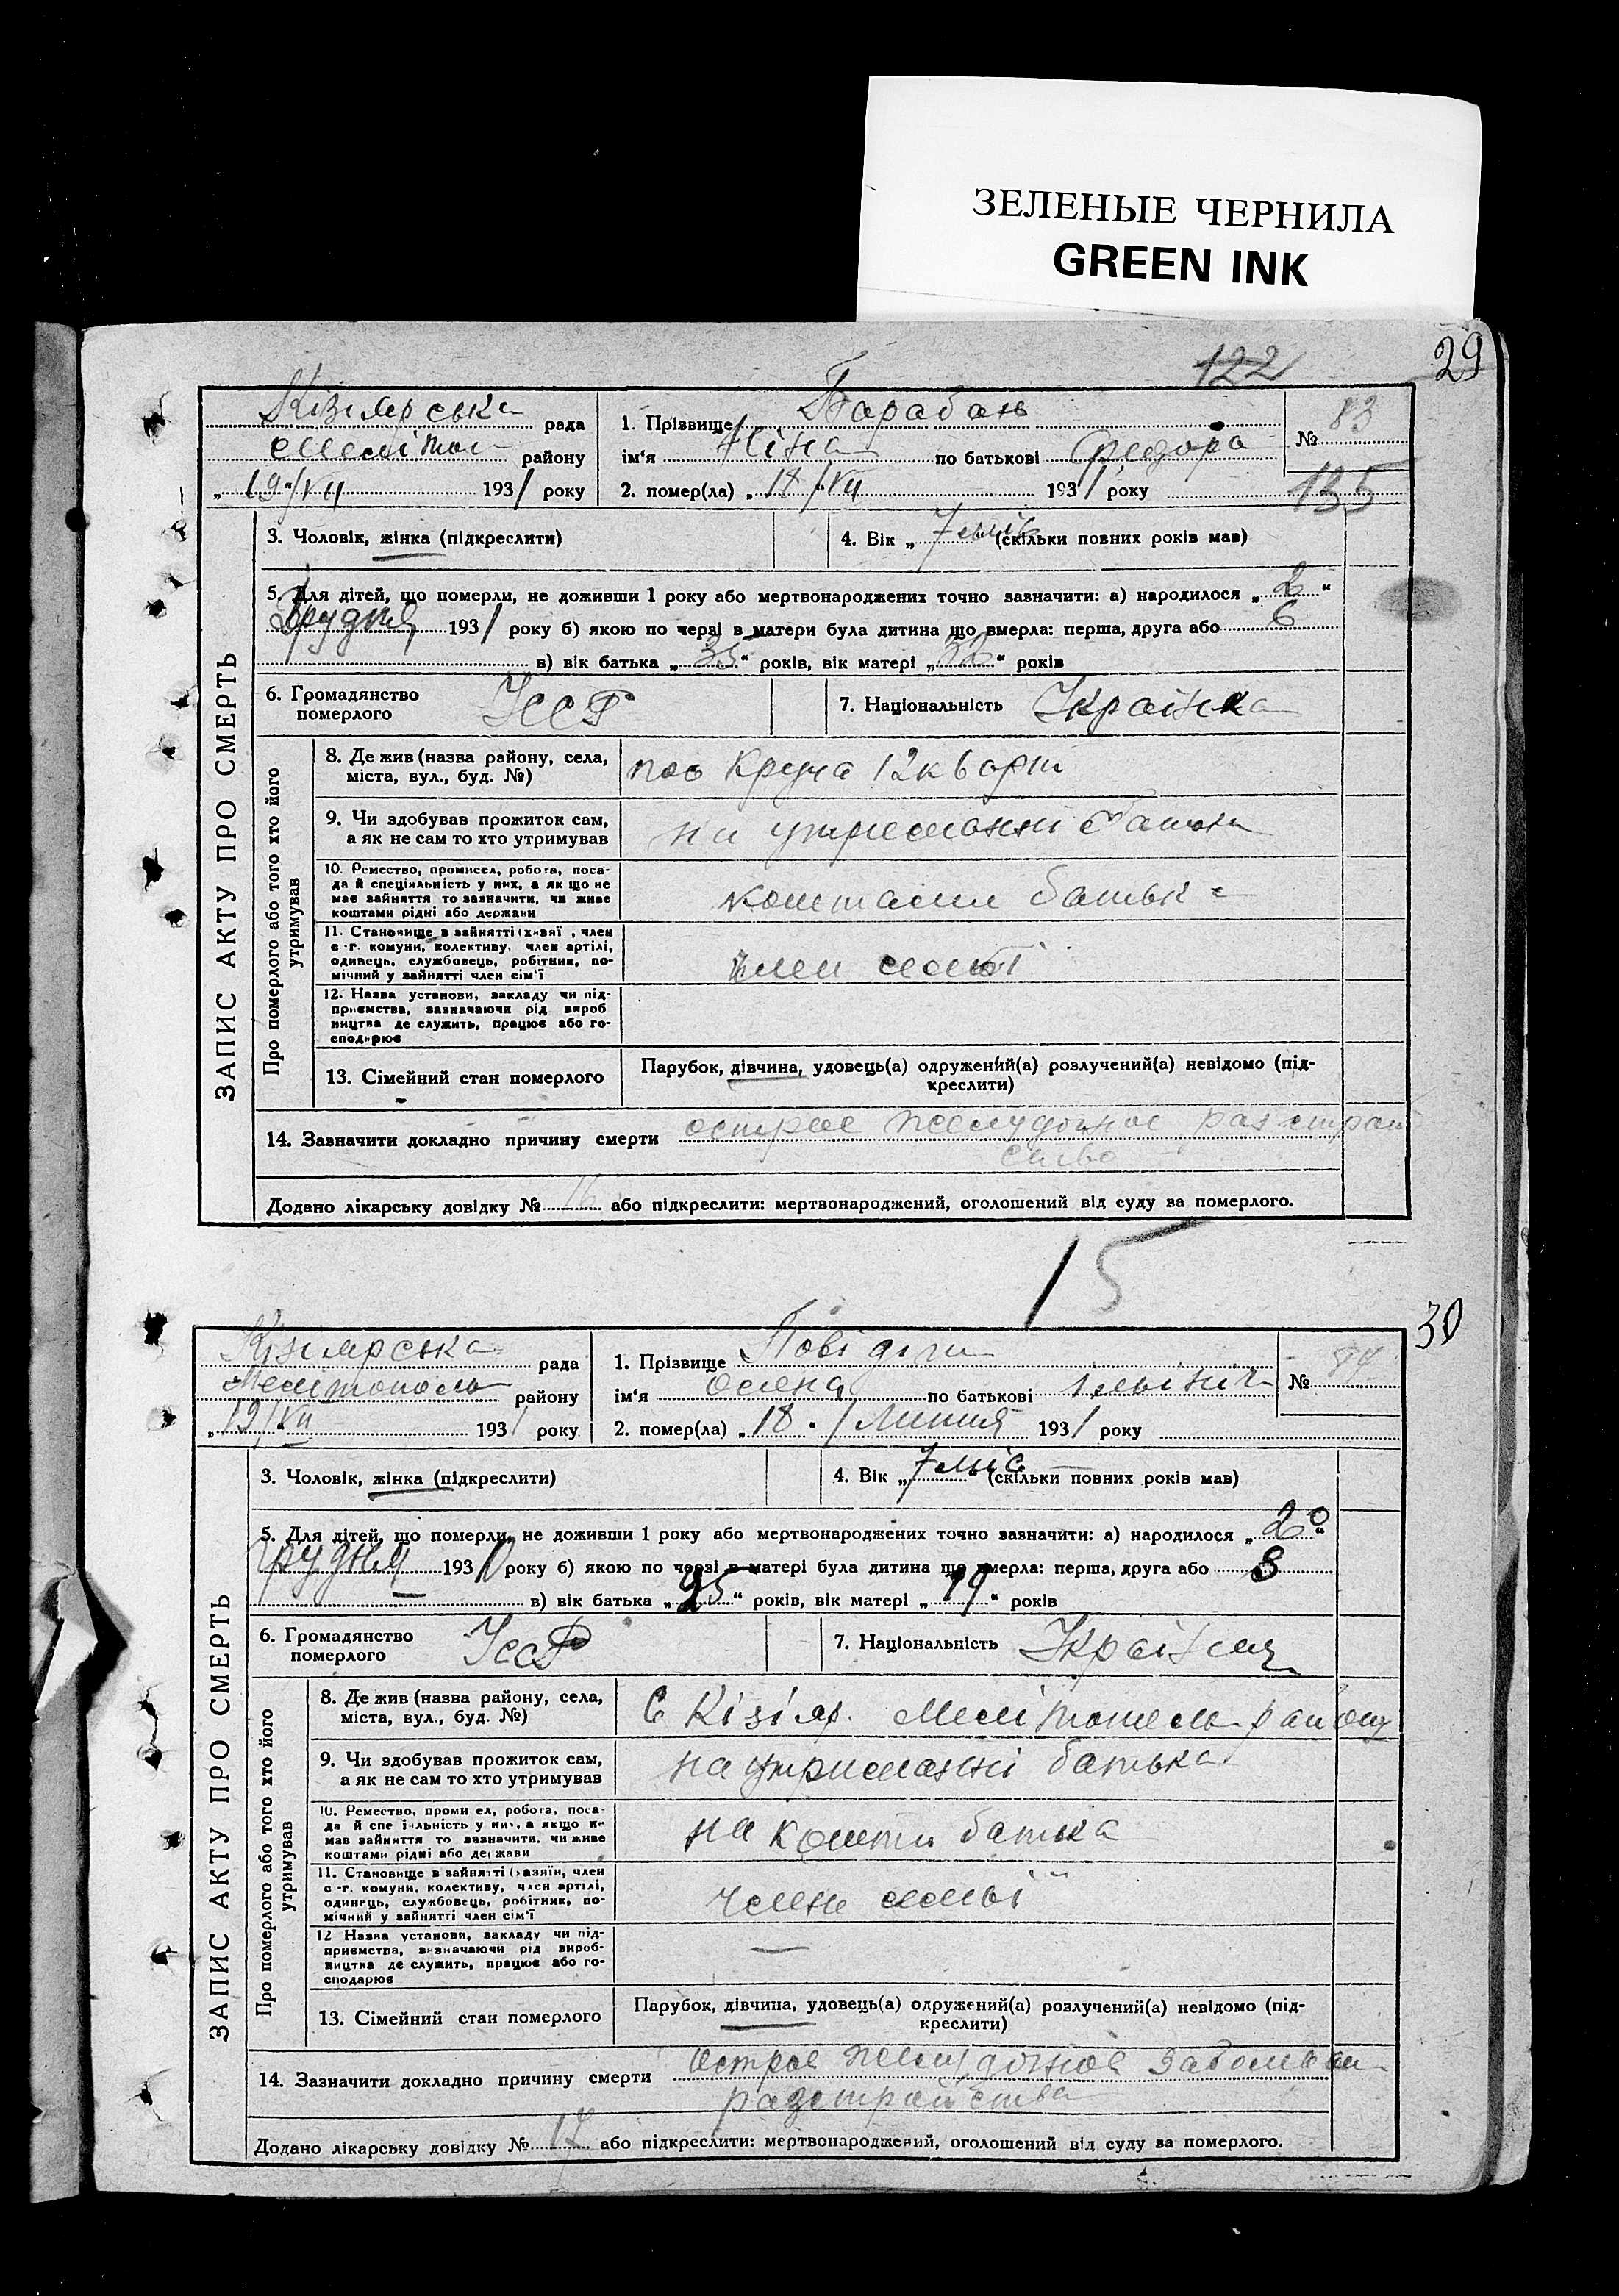 ЗЕЛЕНЫЕ ЧЕРНИЛА
GREEN INK
122
29
Кізіярська рада
Меліто п району
„19“/VII 1931 року
1. Прізвище Барабань
ім‘я Ніна по батькові Федора
2. помер(ла) „18“/VII 1931 року
№ 83
135
ЗАПИС АКТУ ПРО СМЕРТЬ
3. Чоловік, жінка (підкреслити)
4. Вік „7 міс (скільки повних років мав)
5. Для дітей, що померли, не доживши 1 року або мертвонароджених точно зазначити: а) народилося „2“
Грудня 1931 року б) якою по черзі в матери була дитина що вмерла: перша, друга або 6
в) вік батька „35“ років, вік матері „“ років
6. Громадянство
померлого
УССР
7. Національність Українка
Про померлого або того хто його
утримував
8. Де жив (назва району, села,
міста, вул., буд. №)
Круча 12 кварт
9. Чи здобував прожиток сам,
а як не сам то хто утримував
на утриманні батька
10. Ремество, промисел, робота, поса-
да й спеціяльність у них, а як що не
має зайняття то зазначити, чи живе
коштами рідні або держави
коштами батька
11. Становище в зайнятті (хазяї , член
с.-г. комуни, колективу, член артілі,
одинець, службовець, робітник, по-
мічний у зайнятті член сім‘ї
член семьї
12. Назва установи, закладу чи під-
приємства, зазначаючи рід вироб
ництва де служить, працює або го-
сподарює
13. Сімейний стан померлого
Парубок, дівчина, удовець(а) одружений(а) розлучений(а) невідомо (під-
креслити)
14. Зазначити докладно причину смерти острое желудочное разстрай
ство
Додано лікарську довідку № 16 або підкреслити: мертвонароджений, оголошений від суду за померлого.
15
30
Кізіярська рада
Мелітополь району
„19“/VII 1931 року
1. Прізвище
ім‘я Олена по батькові
2. помер(ла) „18“ / Липня 1931 року
№ 84
ЗАПИС АКТУ ПРО СМЕРТЬ
3. Чоловік, жінка (підкреслити)
4. Вік „7 міс“ (скільки повних років мав)
5. Для дітей, що померли, не доживши 1 року або мертвонароджених точно зазначити: а) народилося „20“
грудня 1930 року б) якою по черзі в матери була дитина що вмерла: перша, друга або 3
в) вік батька „25“ років, вік матері „19“ років
6. Громадянство
померлого
УССР
7. Національність
Про померлого або того хто його
утримував
8. Де жив (назва району, села,
міста, вул., буд. №)
С Кізіяр. Мелітопель району
9. Чи здобував прожиток сам,
а як не сам то хто утримував
на утриманні батька
10. Ремество, проми ел, робота, поса-
да й спе іяльність у них, а якщо не
мав зайняття то зазначити, чи живе
коштами рідні або держави
на кошти батька
11. Становище в зайнятті (хазяїн, член
с -г. комуни, колективу, член артілі,
одинець, службовець, робітник, по-
мічний у зайнятті член сім‘ї
член семьї
12 Назва установи, закладу чи під-
приємства, зазначаючи рід вироб-
ництва де служить, працює або го-
сподарює
—
13. Сімейний стан померлого
Парубок, дівчина, удовець(а) одружений(а) розлучений(а) невідомо (під-
креслити)
14. Зазначити докладно причину смерти Острое желудочное
разстрайства
Додано лікарську довідку № 17 або підкреслити: мертвонароджений, оголошений від суду за померлого.